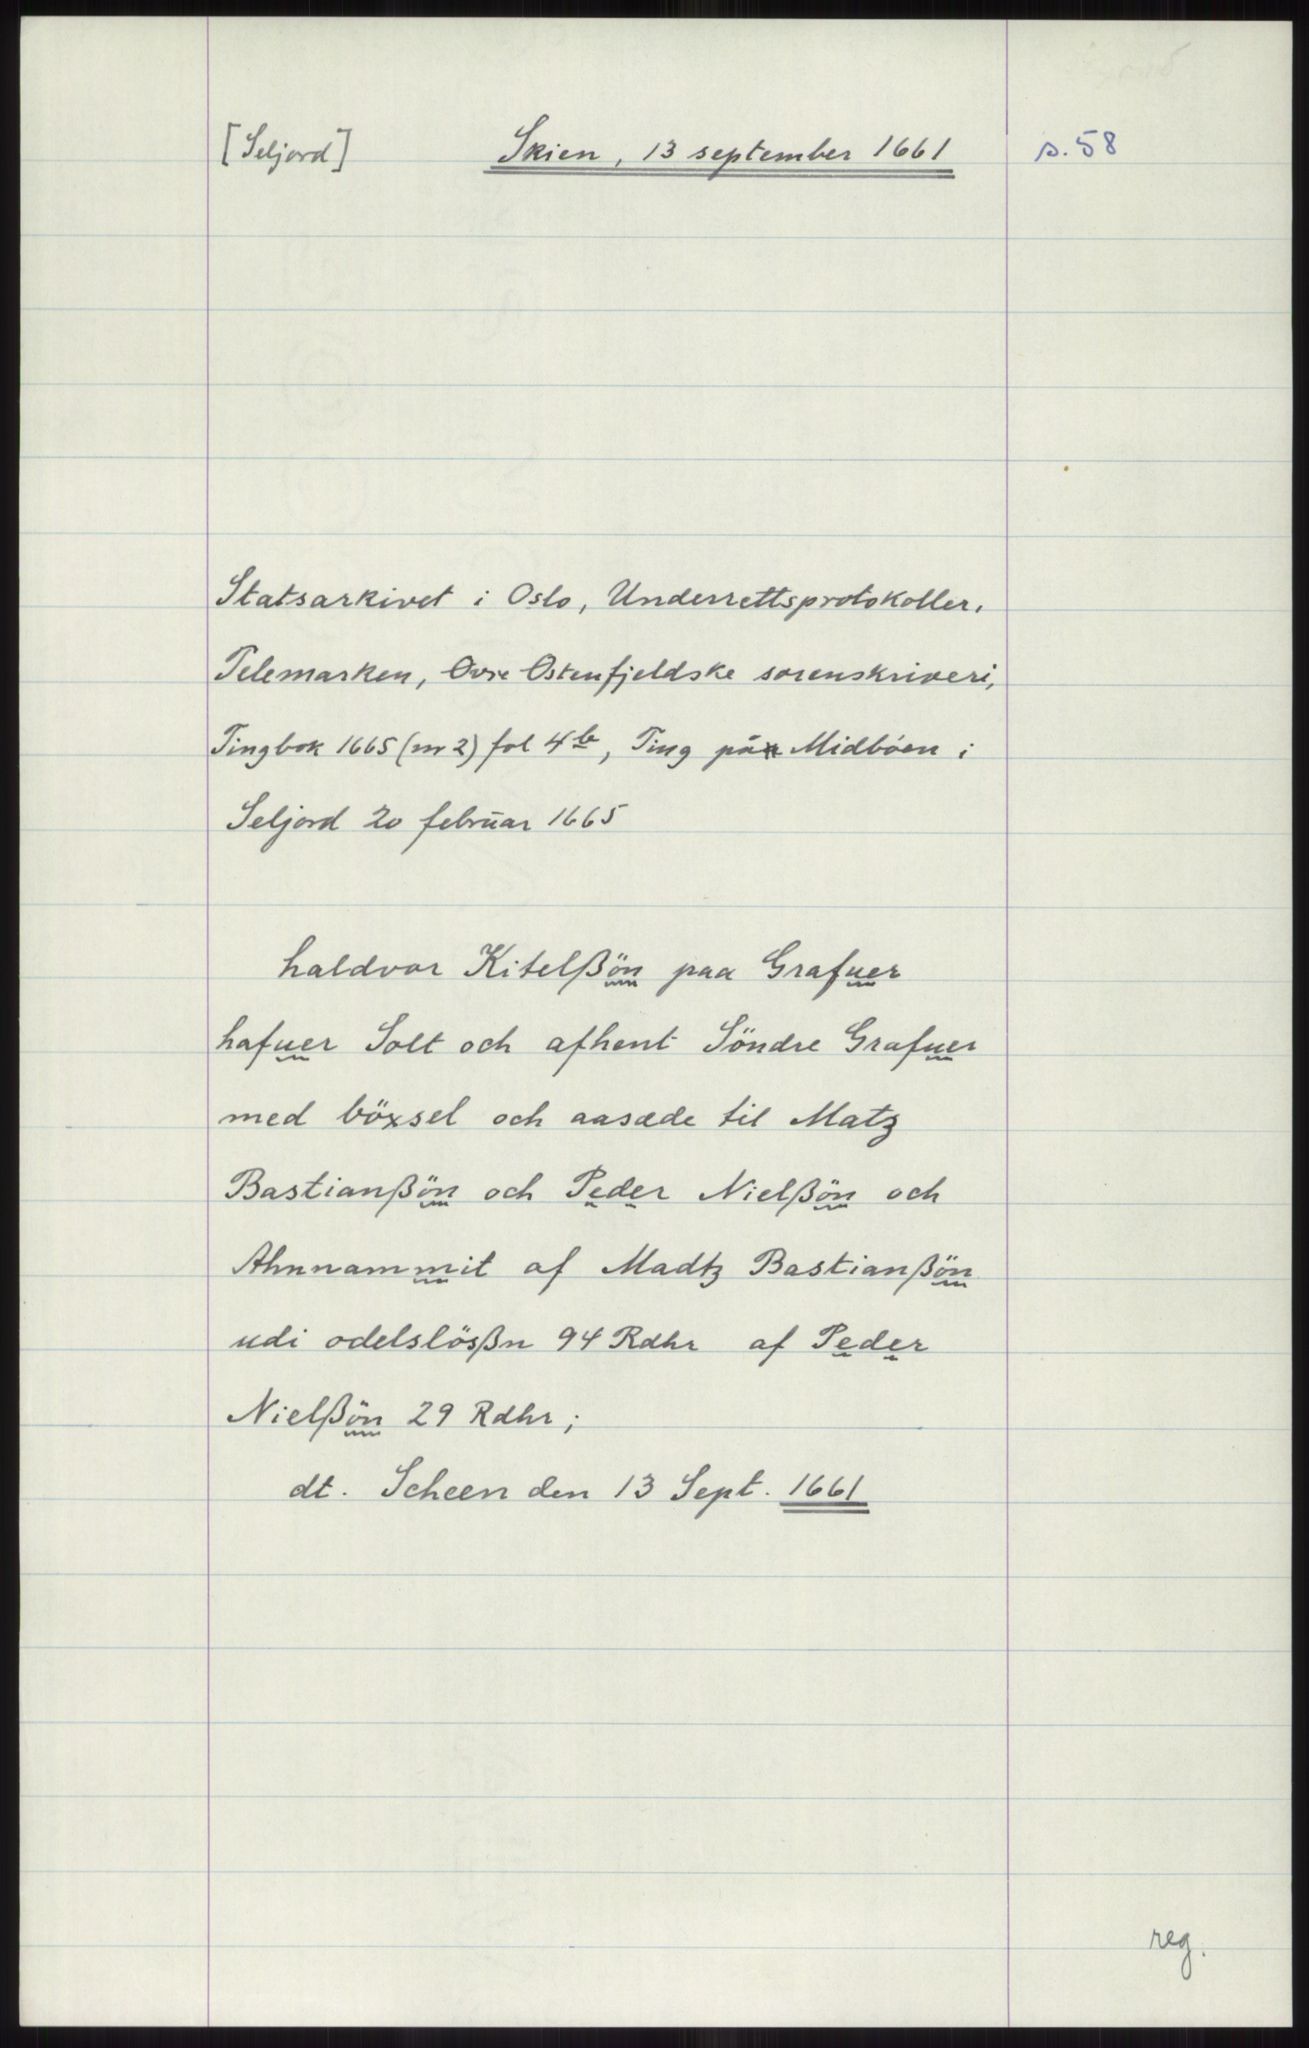 [Seljord] Skien, 13 september 1661 s. 58
Statsarkivet i Oslo, Underrettsprotokoller.
Telemarken, Øvre Østenfjeldske sorenskriveri,
Tingbok 1665 (nr 2) fol 4b, Ting på Midbøen i
Seljord 20 februar 1665
haldvor Kitelßön paa Grafuer
hafuer Solt och afhent Söndre Grafuer
med böxsel och aasæde til Matz
Bastianßön och Peder Nielßön och
Ahnnammit af Madtz Bastianßön
udi odelslösßn 94 Rdhr af Peder
Nielßön 29 Rdhr;
dt. Scheen den 13 Sept. 1661
reg.